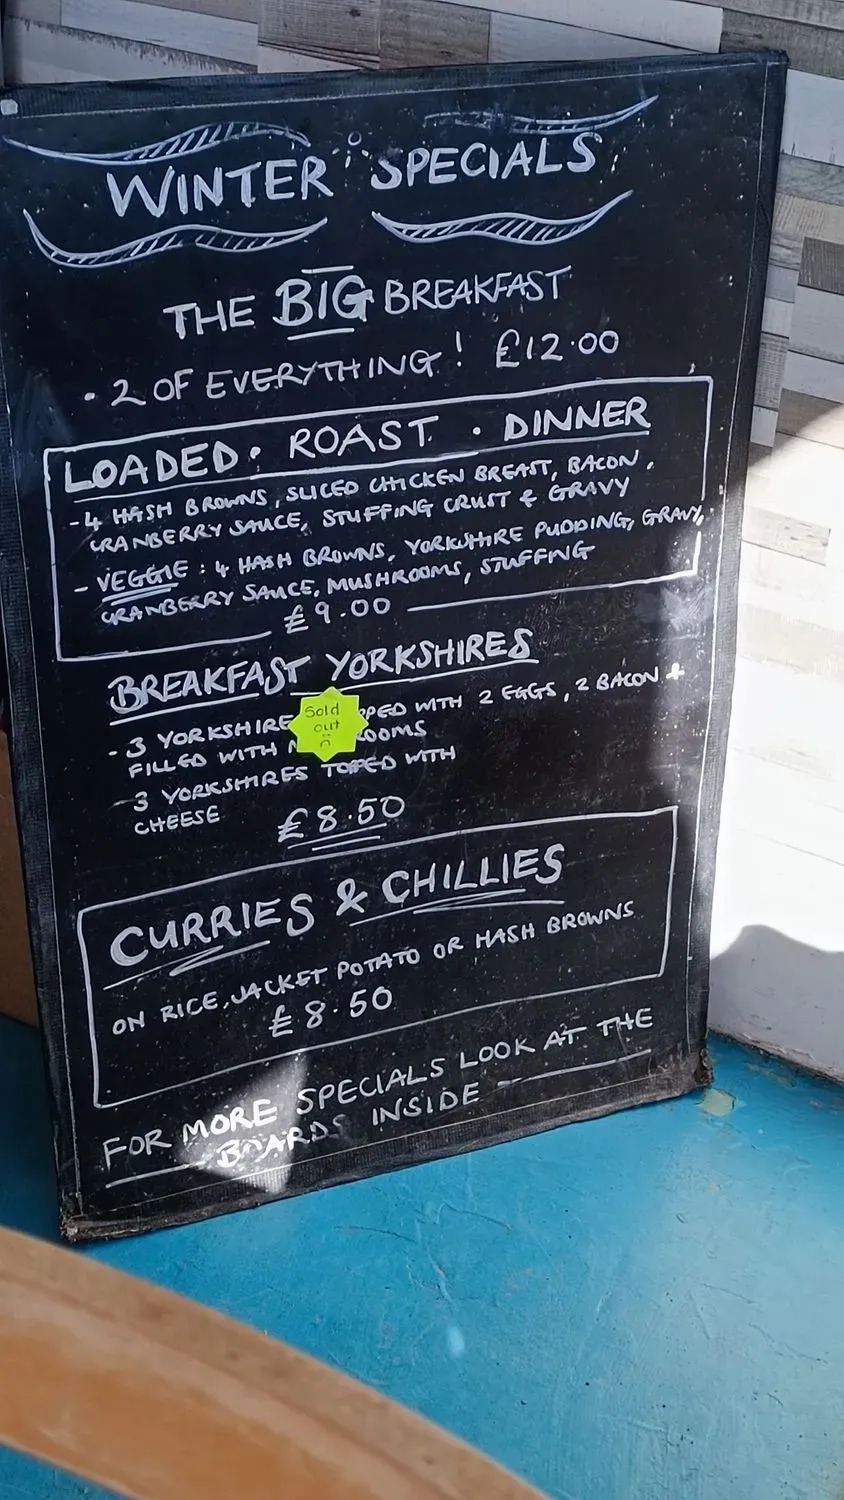 WINTER SPECIALS
THE BIG BREAKFAST
· 2 OF EVERYTHING! £12.00
LOADED · ROAST · DINNER
- 4 HASH BROWNS, SLICED CHICKEN BREAST, BACON,
CRANBERRY SAUCE, STUFFING CRUST & GRAVY
- VEGGIE : 4 HASH BROWNS, YORKSHIRE PUDDING, GRAVY,
CRANBERRY SAUCE, MUSHROOMS, STUFFING
£9.00
BREAKFAST YORKSHIRES
- 3 YORKSHIRE WITH 2 EGGS, 2 BACON &
Sold
out
FILLED WITH
- 3 YORKSHIRES TOPED WITH
CHEESE
£8.50
CURRIES & CHILLIES
ON RICE, JACKET POTATO OR HASH BROWNS
£8.50
FOR MORE SPECIALS LOOK AT THE
BOARDS INSIDE